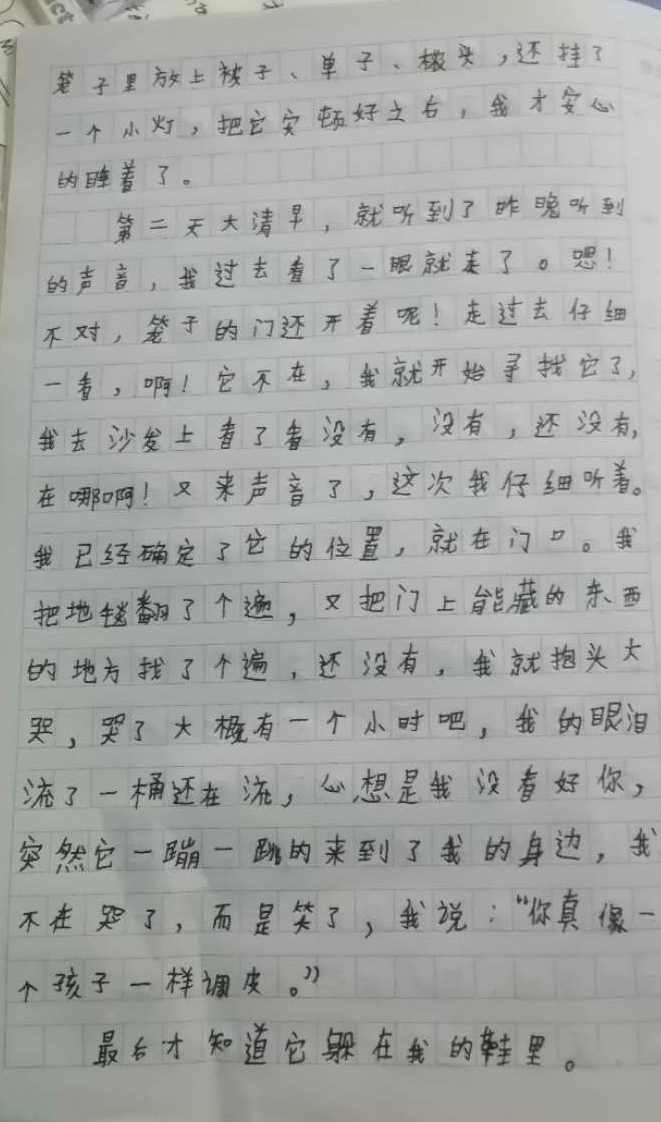 笼子里放上被子、单子、枕头，还挂了
一个小灯，把它安顿好之后，我才安心
的睡着了。
第二天大清早，就听到了昨晚听到
的声音，我过去看了一眼就走了。嗯！
不对，笼子的门还开着呢！走过去仔细
一看，啊！它不在，我就开始寻找它了，
我去沙发上看了看没有，没有，还没有，
在哪啊！又来声音了，这次我仔细听着。
我已经确定了它的位置，就在门口。我
把地毯翻了个遍，又把门上能藏的东西
的地方找了个遍，还没有，我就抱头大
哭，哭了大概有一个小时吧，我的眼泪
流了一桶还在流，心想是我没看好你，
突然它一蹦一跳的来到了我的身边，我
不在哭了，而是笑了，我说：“你真像一
个孩子一样调皮。”
最后才知道它躲在我的鞋里。